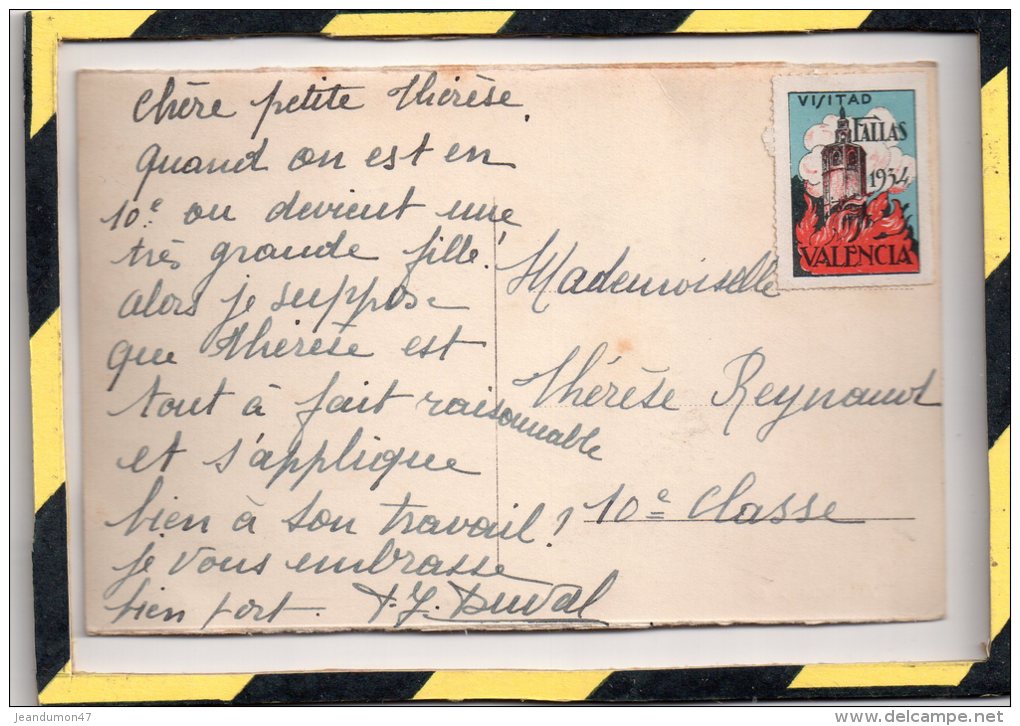 Chère petite Thérèse.
Quand on est en
10e on devient une
très grande fille!
alors je suppose
que Thérèse est
tout à fait raisonnable
et s'applique
bien à son travail?
je vous embrasse
bien fort. J. Duval
VISITAD
FALLAS
1934
VALENCIA
Mademoiselle
Thérèse Reynaud
10e Classe
jeandumon47
www.delcampe.net